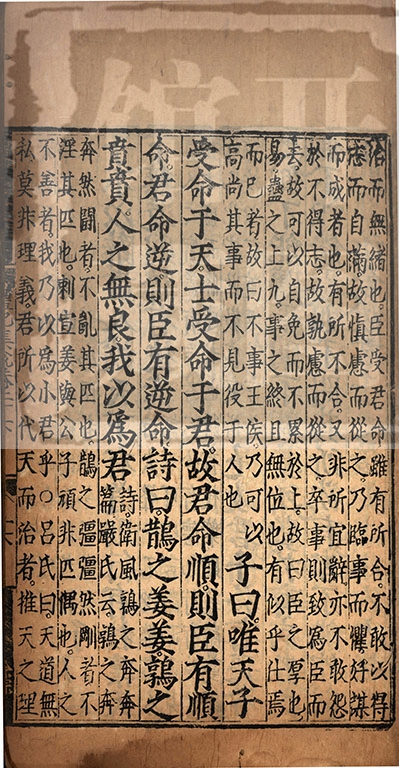 治而無緒也臣受君命雖有所合不敢以得
志而自滿故慎慮而從之乃臨事而懼好謀
而成者也有所不合又非所宜辭亦不敢怨
於不得志故孰慮而從之卒事則致爲臣而
去故可以自免而不累於上故曰臣之厚也
易蠱之上九事之終且無位也有似乎仕焉
而已者故曰不事王侯乃可以
高尚其事而不見役于人也
子曰唯天子
受命于天士受命于君故君命順則臣有順
命君命逆則臣有逆命詩曰鵲之姜姜鶉之
賁賁人之無良我以爲君
詩衛風鶉之奔奔
篇嚴氏云鶉之奔
奔然闘者不亂其匹也鵲之彊彊然剛者不
淫其匹也刺宣姜與公子頑非匹偶也人之
不善者我乃以爲小君乎○呂氏曰天道無
私莫非理義君所以代天而治者推天之理